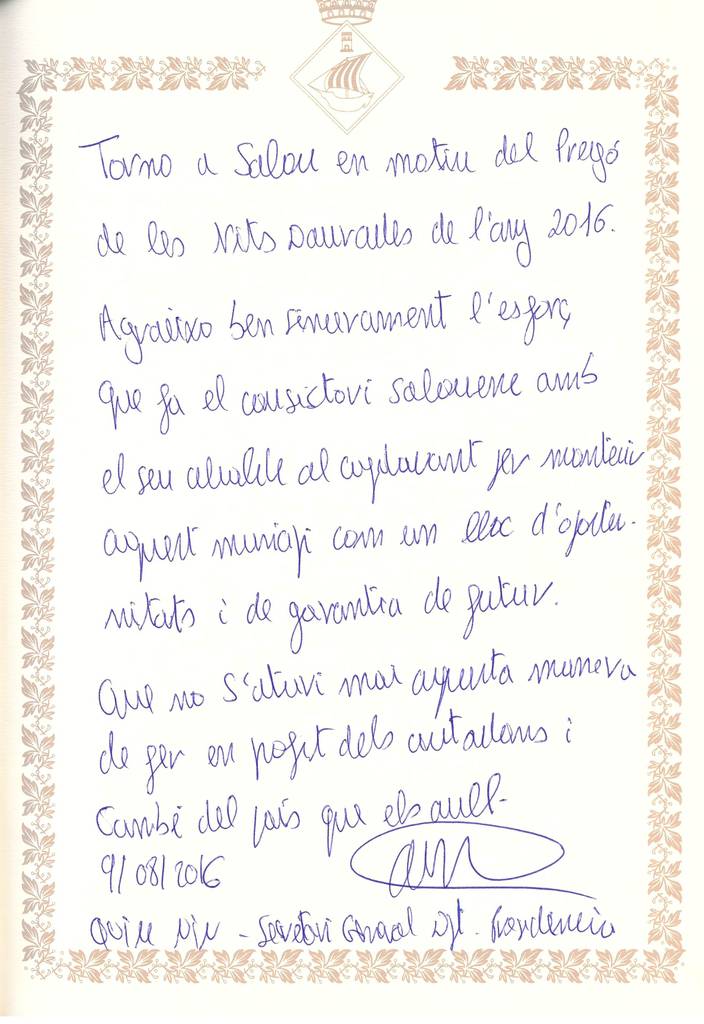 Torno a Salou en motiu del Pregó
de les Nits Daurades de l'any 2016.
Agraeixo ben sincerament l'esforç
que fa el consistori salouenc amb
el seu alcalde al capdavant per mantenir
aquest municipi com un lloc d'oportu-
nitats i de garantia de futur.
Que no s'aturi mai aquesta manera
de fer en profit dels ciutadans i
també del país que els acull.
9/08/2016
Quim Nin - Secretari General Dpt. Presidència